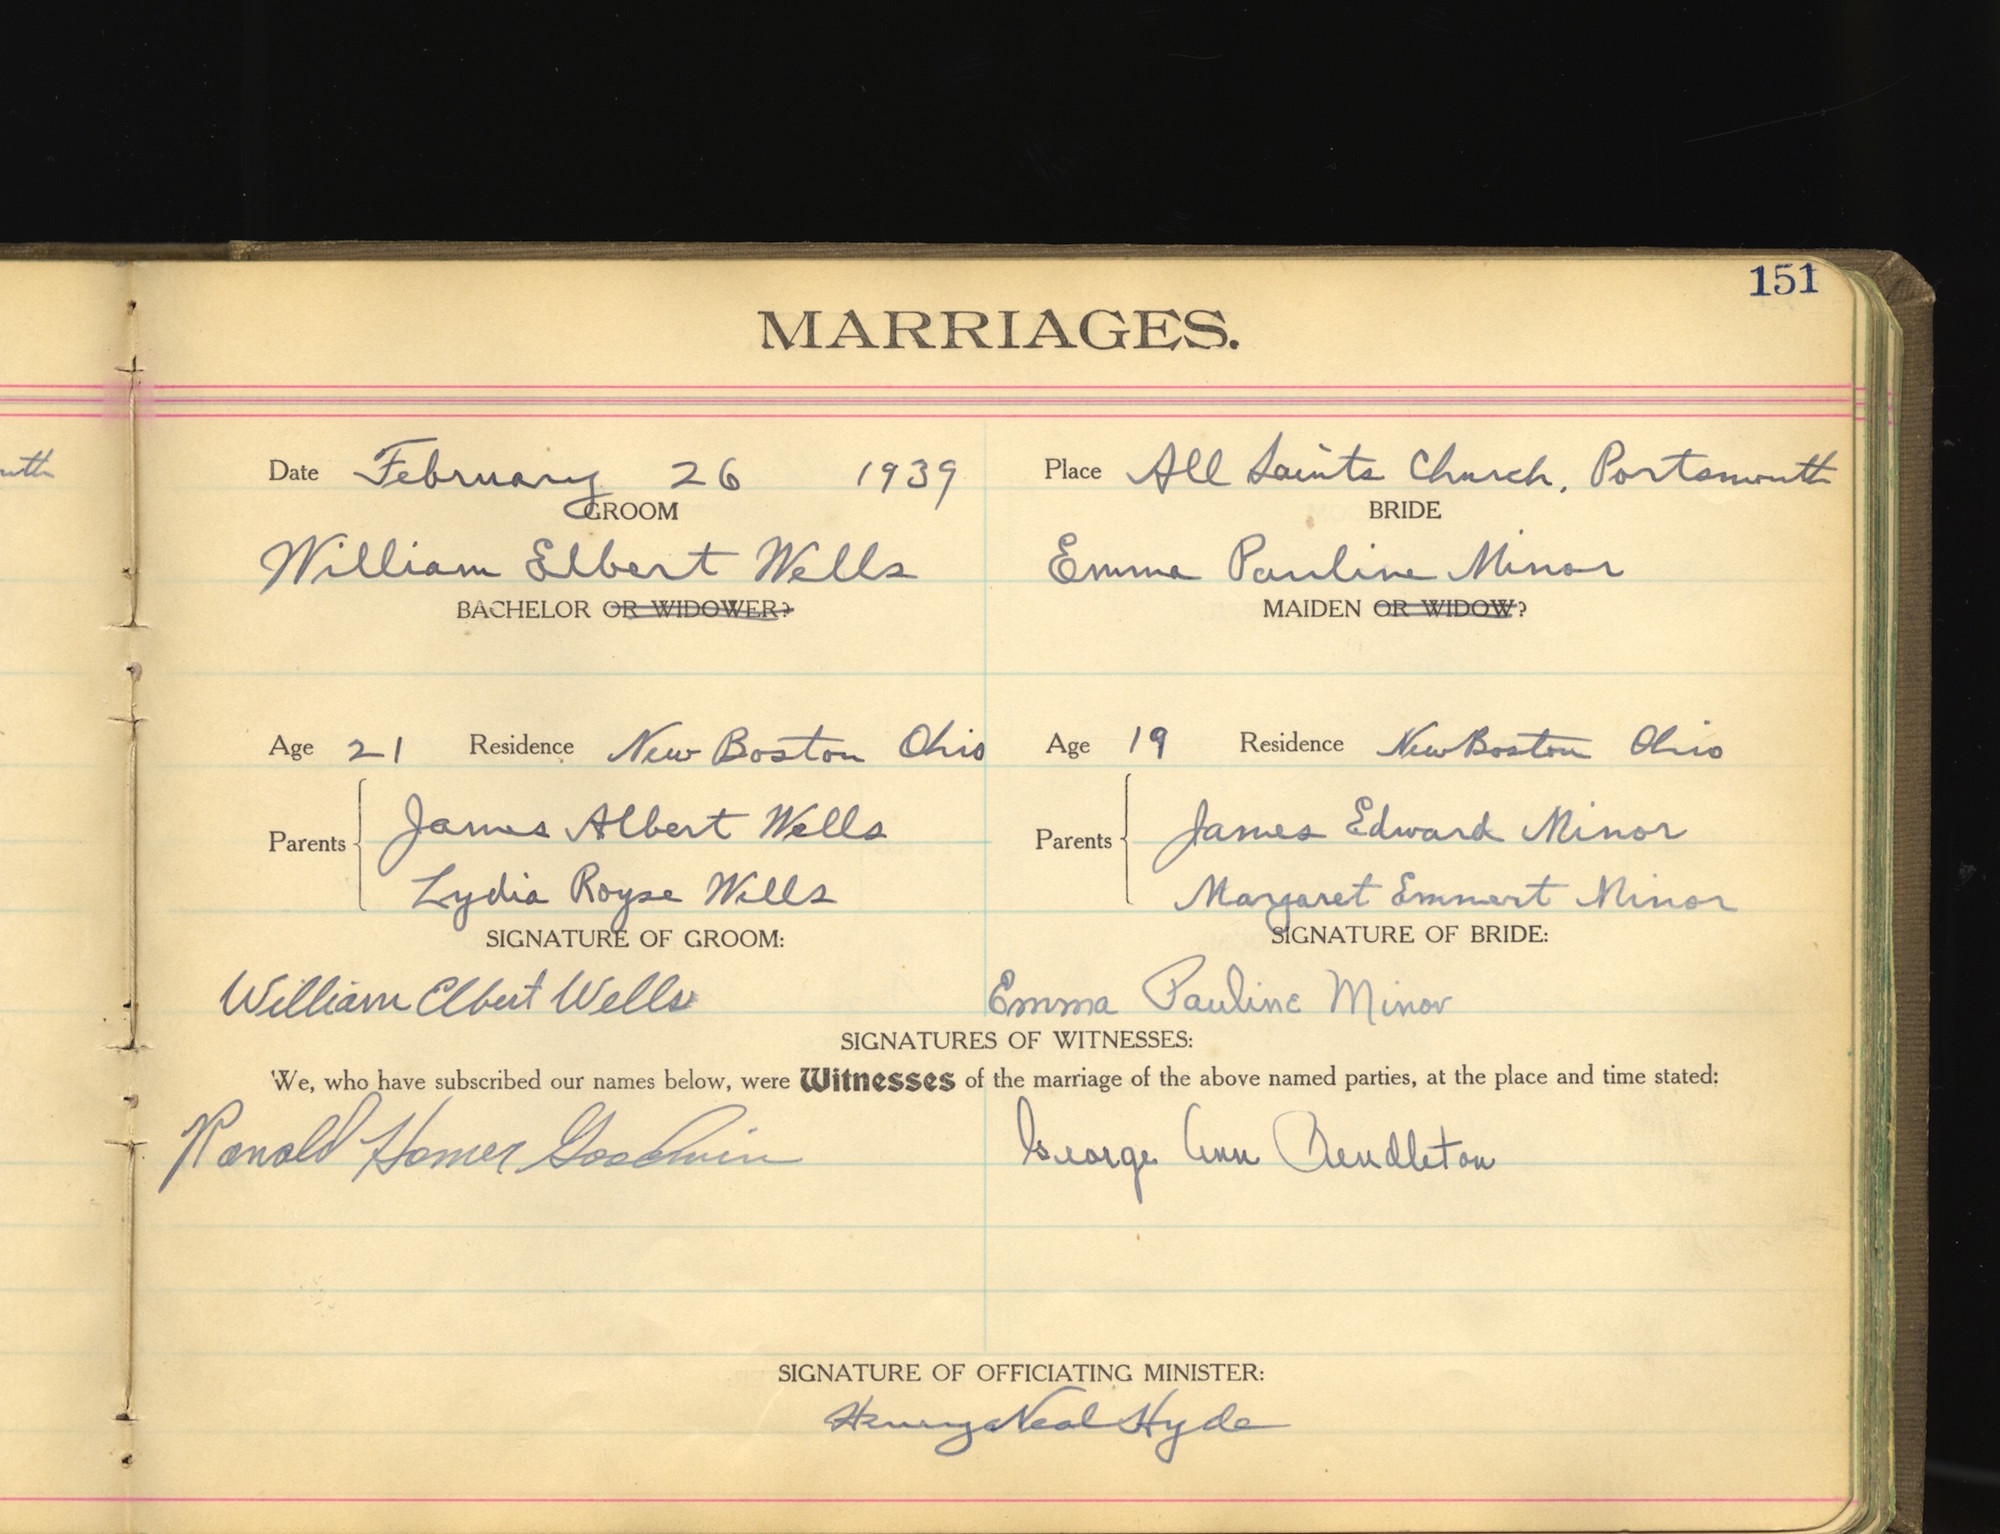 151
MARRIAGES.
Date February 26 1939 Place All Saints Church, Portsmouth
GROOM BRIDE
William Elbert Wells Emma Pauline Minor
BACHELOR OR WIDOWER? MAIDEN OR WIDOW?
Age 21 Residence New Boston Ohio Age 19 Residence New Boston Ohio
Parents James Albert Wells Parents James Edward Minor
Lydia Royse Wells Margaret Emmert Minor
SIGNATURE OF GROOM: SIGNATURE OF BRIDE:
William Elbert Wells Emma Pauline Minor
SIGNATURES OF WITNESSES:
We, who have subscribed our names below, were Witnesses of the marriage of the above named parties, at the place and time stated:
Ronald Homer Goodwin George Ann Pendleton
SIGNATURE OF OFFICIATING MINISTER:
Henry Neal Hyde